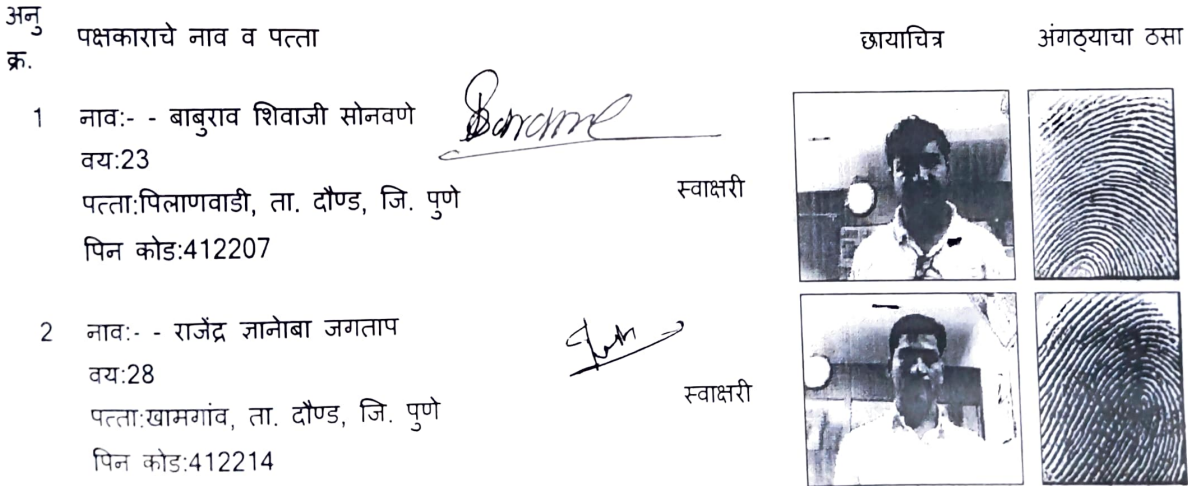 अनु क्र. पक्षकाराचे नाव व पत्ता छायाचित्र अंगठ्याचा ठसा
1 नाव:- - बाबुराव शिवाजी सोनवणे
वय:23
पत्ता:पिलाणवाडी, ता. दौण्ड, जि. पुणे स्वाक्षरी
पिन कोड:412207
2 नाव:- - राजेंद्र ज्ञानोबा जगताप
वय:28
पत्ता:खामगांव, ता. दौण्ड, जि. पुणे स्वाक्षरी
पिन कोड:412214